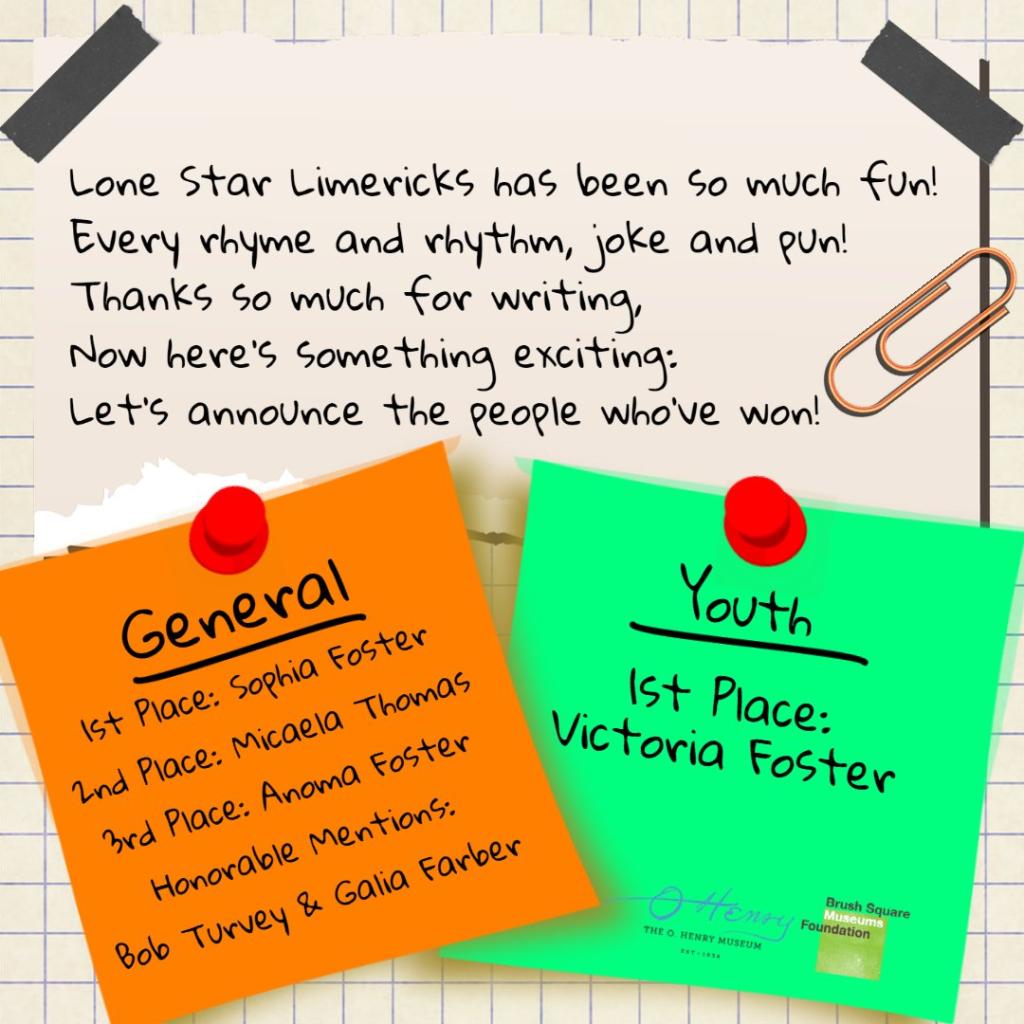 Lone Star Limericks has been so much fun!
Every rhyme and rhythm, joke and pun!
Thanks so much for writing,
Now here's something exciting:
Let's announce the people who've won!
General
1st Place: Sophia Foster
2nd Place: Micaela Thomas
3rd Place: Anoma Foster
Honorable Mentions:
Bob Turvey & Galia Farber
Youth
1st Place:
Victoria Foster
O Henry
THE O. HENRY MUSEUM
EST • 1934
Brush Square
Museums
Foundation